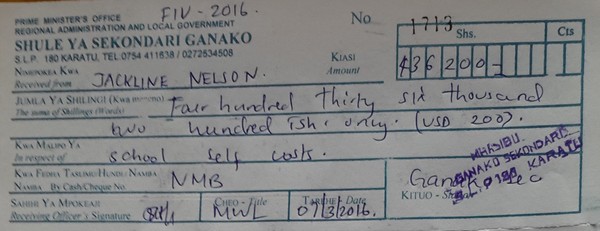 FIV-2016.
PRIME MINISTER'S OFFICE
REGIONAL ADMINISTRATION AND LOCAL GOVERNMENT
No 1713
SHULE YA SEKONDARI GANAKO
S.L.P. 180 KARATU, TEL:0754 411638 / 0272534508
Shs. Cts
KIASI
Amount
436200=
NIMEPOKEA KWA
Received from JACKLINE NELSON.
JUMLA YA SHILINGI (KWA MANENO) Four hundred thirty six thousand
The sums of Shillings (Words) two hundred tsh. only. (USD 200).
KWA MALIPO YA
In respect of school self costs.
KWA FEDHA TASLIMU/HUNDI NAMBA
NAMBA By Cash/Cheque No. NMB
Ganako Sec
KITUO -
MHASIBU
GANAKO SEKONDARI
KARATU
SAHIHI YA MPOKEAJI
Receiving Officer's Signature
CHEO - Title
MWL
TAREHE - Date
07/3/2016.